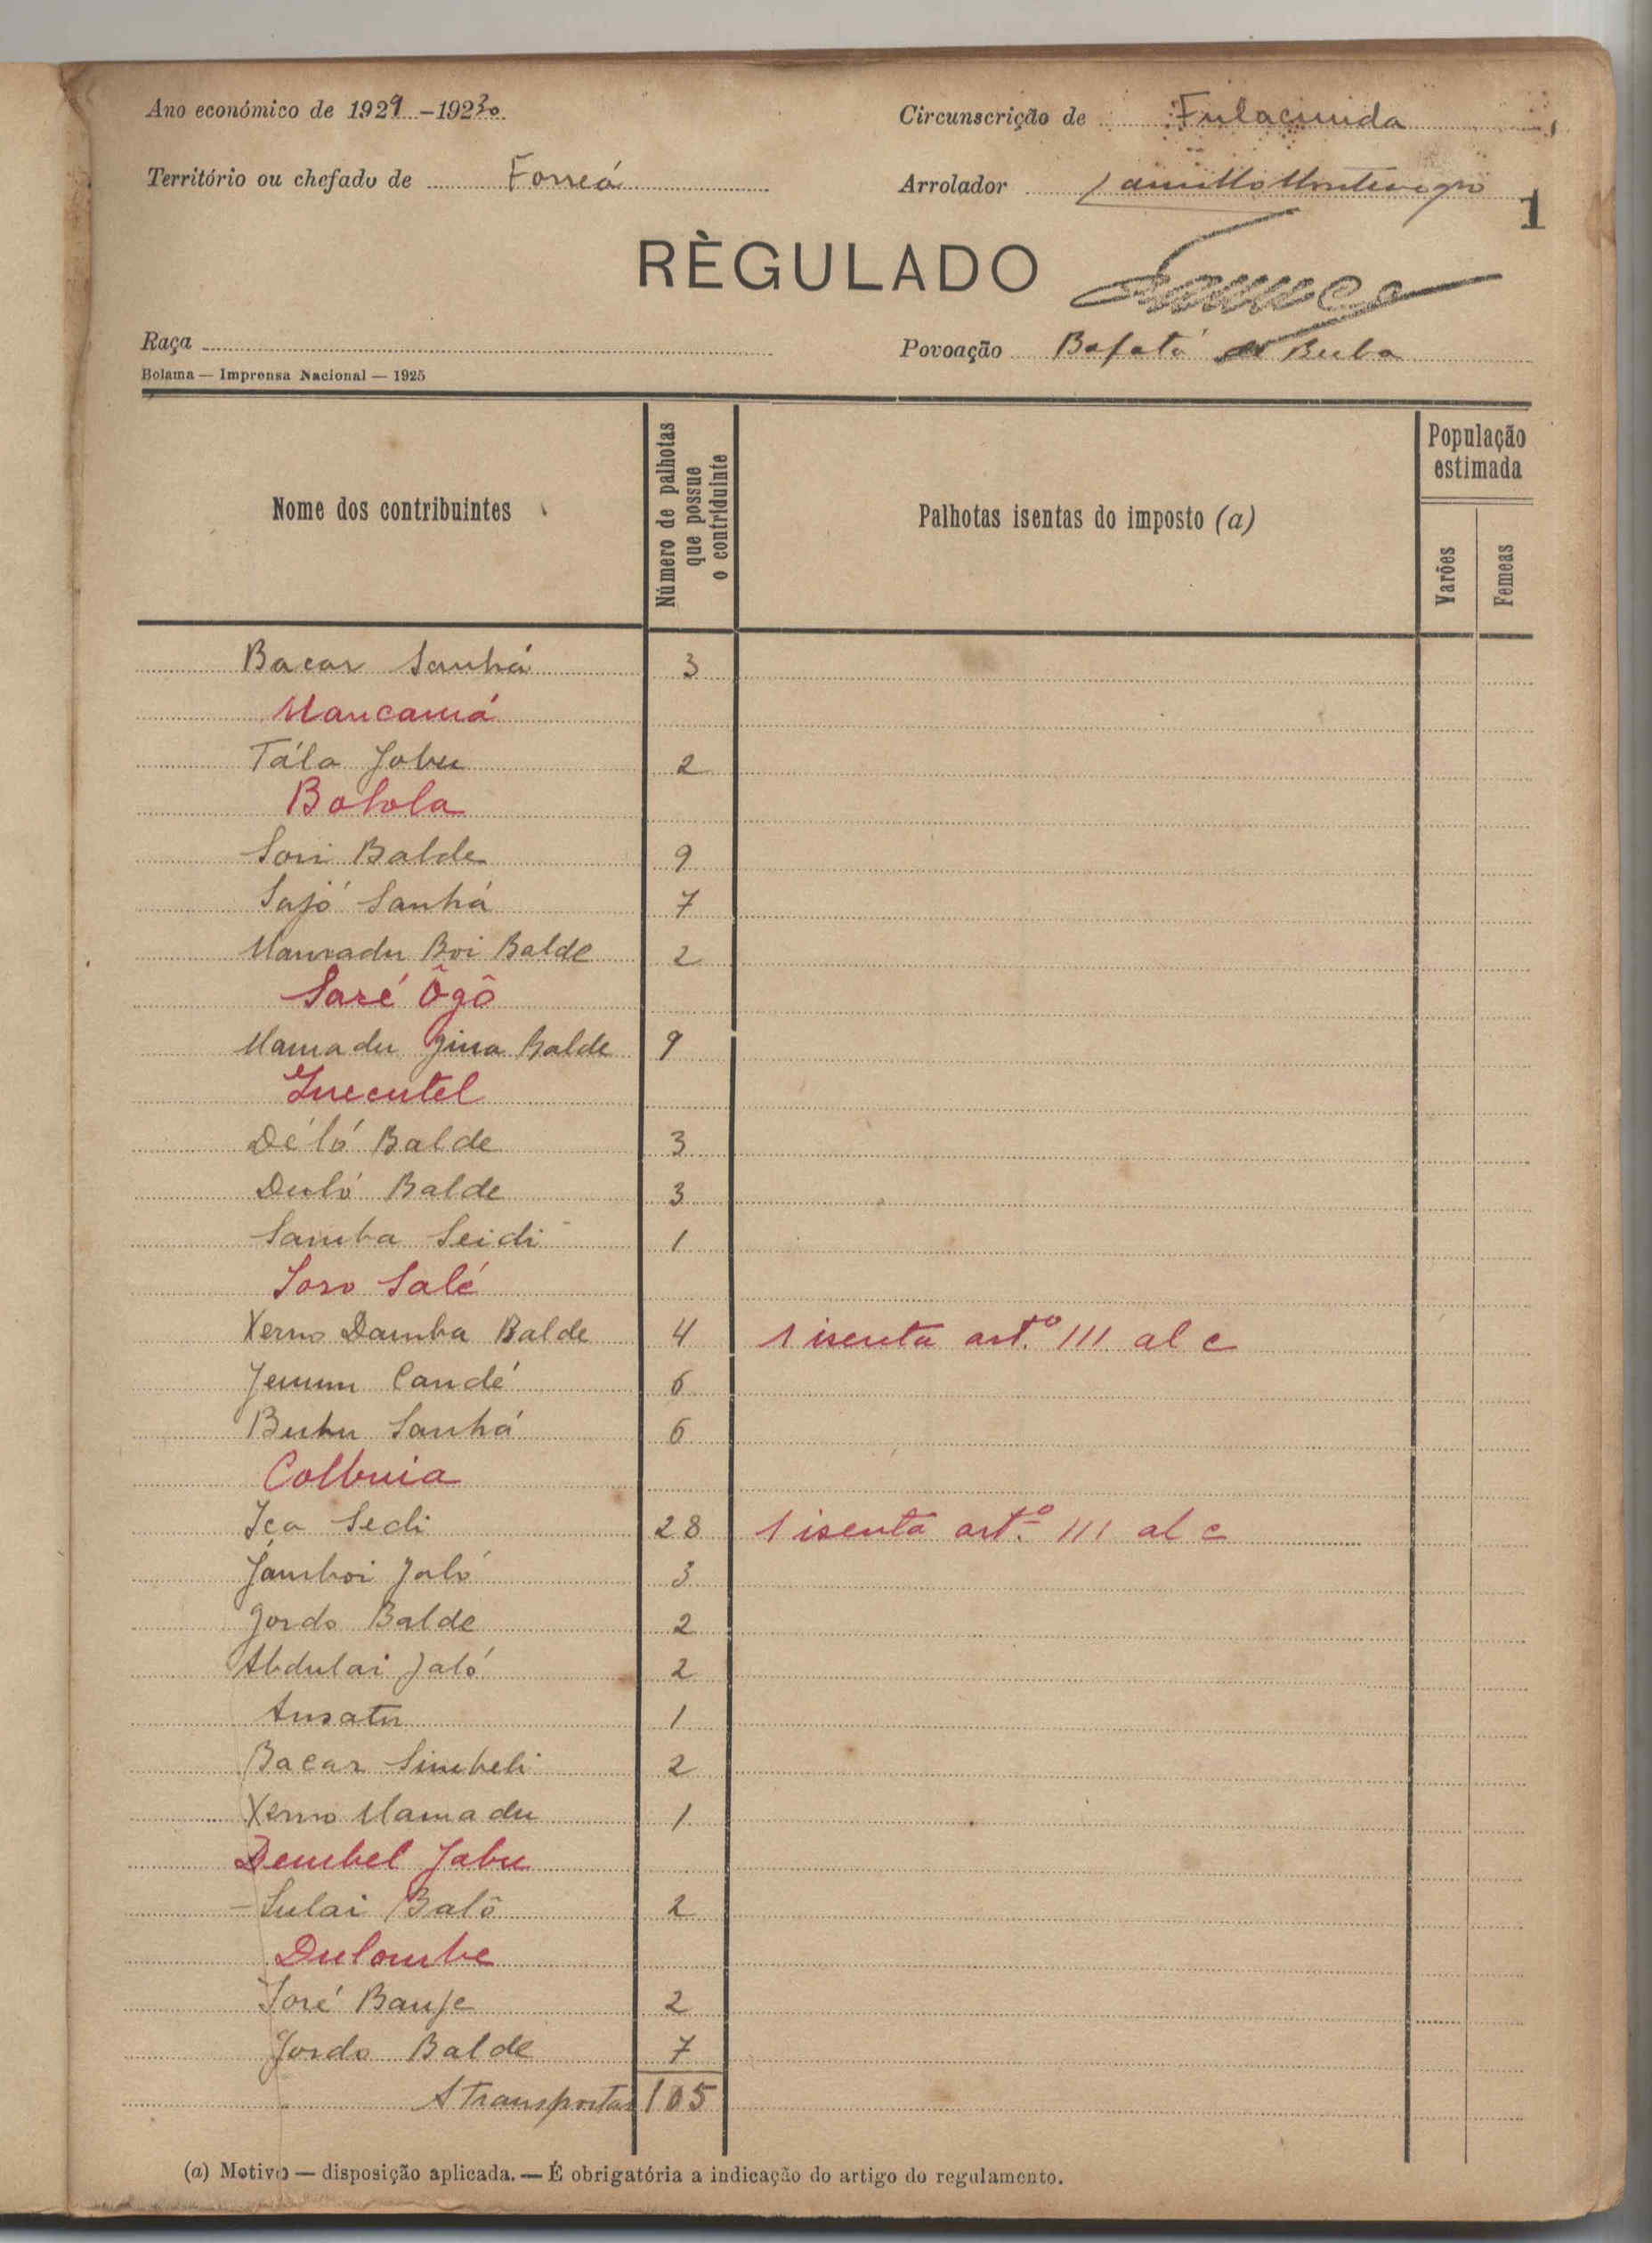 Ano económico de 1929-1930
Circunscrição de Fulacunda
Território ou chefado de Forreá
Arrolador Camillo Montenegro
1
RÈGULADO
Raça
Povoação Bafatá de Buba
Bolama — Imprensa Nacional — 1925
Nome dos contribuintes
Número de palhotas que possue o contriduinte
Palhotas isentas do imposto (a)
População estimada
Varões
Femeas
Bacar Sanhá 3
Mancamá
Tála Jobu 2
Bolola
Sori Balde 9
Sajó Sanhá 7
Mamadu Boi Balde 2
Saré Ôgô
Mamadu Gina Balde 9
Inecutel
Déló Balde 3
Duló Balde 3
Samba Seidi 1
Soro Salé
Xerno Damba Balde 4 1 isenta art.º 111 al c
Jenum Candé 6
Bubu Sanhá 6
Colbuia
Iça Sedi 28 1 isenta art.º 111 al c
Jamboi Jaló 3
Jordo Balde 2
Abdulai Jaló 2
Ansatu 1
Bacar Simbeli 2
Xerno Mamadu 1
Dembel Jabu
Sulai Balô 2
Dulombe
Soré Banje 2
Jordo Balde 7
A transportar 105
(a) Motivo — disposição aplicada. — É obrigatória a indicação do artigo do regulamento.